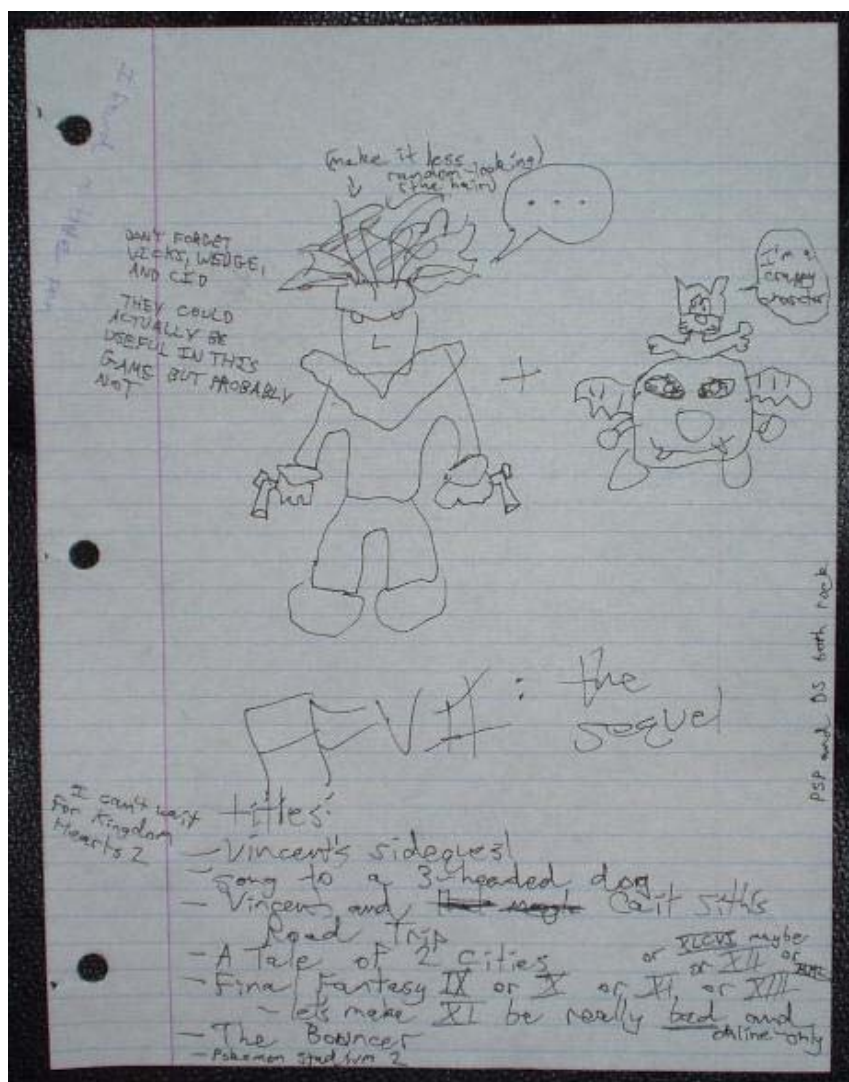 I found
a
pen
(make it less
random-looking)
(the hair)
. . .
DON'T FORGET
VICKS, WEDGE,
AND CID
THEY COULD
ACTUALLY BE
USEFUL IN THIS
GAME BUT PROBABLY
NOT
I'm a
crappy
character
+
FFVII: the
sequel
PSP and DS both rock
I can't wait
For Kingdom
Hearts 2
titles:
- Vincent's sidequest
- Song to a 3-headed dog
- Vincent and Cait Sith's
Road Trip
- A Tale of 2 Cities
- Final Fantasy IX or X or XI or XIII
or XLCVI maybe
or XII or
- let's make XI be really bad and
online-only
- The Bouncer
- Pokemon Stadium 2